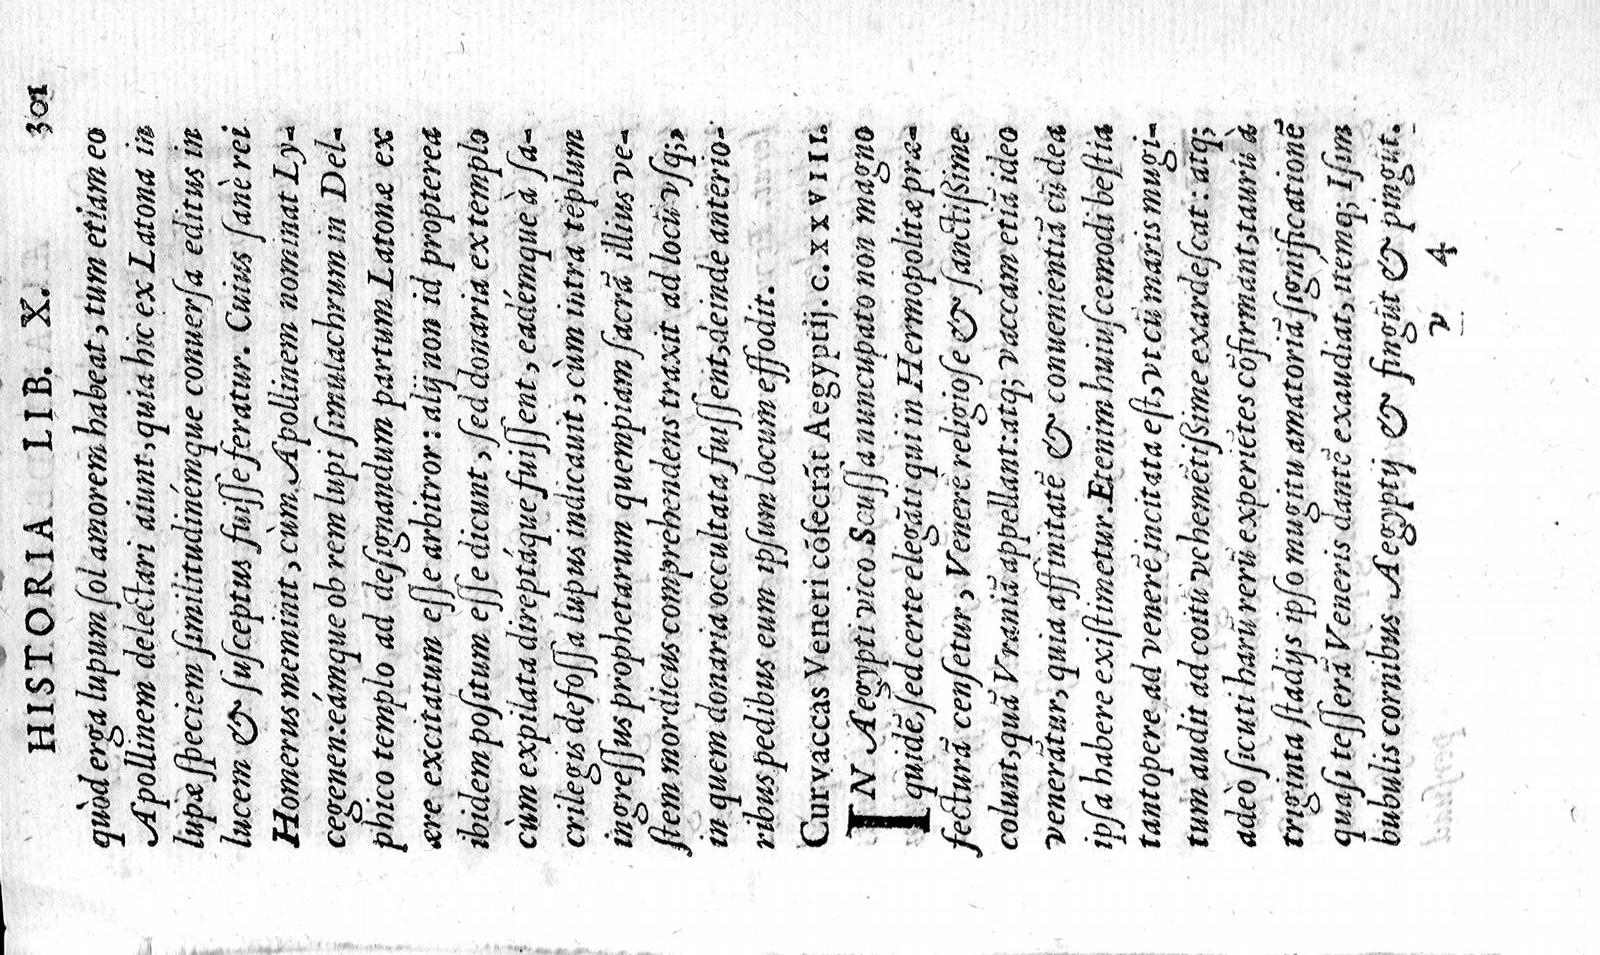 HISTORIA LIB. X. 301
quòd erga lupum ſol amorem habeat, tum etiam eo
Apollinem delectari aiunt, quia hic ex Latona in
lupæ ſpeciem ſimilitudinémque conuerſa editus in
lucem & ſuſceptus fuiſſe feratur. Cuius ſanè rei
Homerus meminit, cùm Apollinem nominat Ly-
cegenen: eámque ob rem lupi ſimulachrum in Del-
phico templo ad deſignandum partum Latonæ ex
ære excitatum eſſe arbitror: alij non id propterea
ibidem poſitum eſſe dicunt, ſed donaria ex templo
cùm expilata direptáque fuiſſent, eadémque à ſa-
crilegis defoſſa lupus indicauit, cùm intra tẽplum
ingreſſus prophetarum quempiam ſacrã illius ve-
ſtem mordicus comprehendens traxit ad locũ vſq;,
in quem donaria occultata fuiſſent, deinde anterio-
ribus pedibus eum ipſum locum effodit.
Cur vaccas Veneri cõſecrãt Aegyptij. c. XXVII.
IN Aegypti vico Scuſſa nuncupato non magno
quidẽ, ſed certe elegãti qui in Hermopolitæ præ-
fecturã cenſetur, Venerẽ religioſe & ſanctiſsime
colunt, quã Vraniã appellant: atq; vaccam etiã ideo
venerãtur, quia affinitatẽ & conuenientiã cũ dea
ipſa habere exiſtimetur. Etenim huiuſcemodi beſtia
tantopere ad venerẽ incitata eſt, vt cũ maris mugi-
tum audit ad coitũ vehemẽtiſsime exardeſcat: atq;
adeò ſicuti harũ rerũ experiẽtes cõfirmant, tauri à
triginta ſtadijs ipſo mugitu amatoriã ſignificationẽ
quaſi teſſerã Veneris dantẽ exaudiat, itemq; Iſim
bubulis cornibus Aegyptij & fingũt & pingũt.
v 4